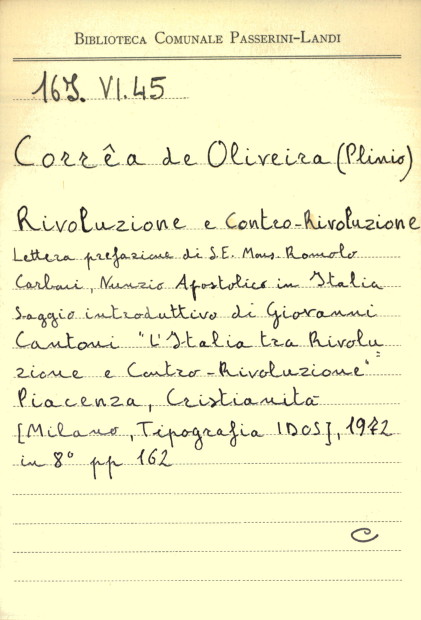 BIBLIOTECA COMUNALE PASSERINI-LANDI
16J. VI.45
Corrêa de Oliveira (Plinio)
Rivoluzione e Contro-Rivoluzione
Lettera prefazione di S.E. Mons. Romolo
Carboni, Nunzio Apostolico in Italia
Saggio introduttivo di Giovanni
Cantoni "L'Italia tra Rivolu
zione e Contro-Rivoluzione"
Piacenza, Cristianità
[Milano, Tipografia IDOS], 1972
in 8° pp 162
C